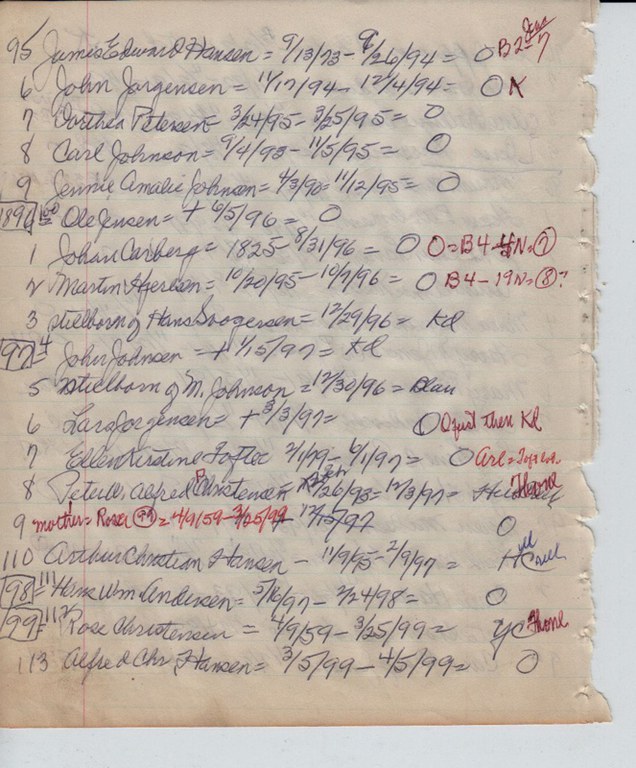 95 James Edward Hansen = 9/13/73 - 9/26/94 = O B2 = 7
6 John Jorgensen = 11/17/94 - 12/4/94 = O K
7 Dorthea Petersen = 3/24/95 - 3/25/95 = O
8 Carl Johnson = 9/4/93 - 11/5/95 = O
9 Jennie Amalie Johnson = 4/3/90 = 11/12/95 = O
1896 100 = Ole Jensen = + 6/5/96 = O
1 Johan Carberg = 1825 - 8/31/96 = O O = B4 - N = 7
2 Martin = 10/20/95 - 10/7/96 = O B4 - 19 N = 8?
3 stilborn of Hans = 12/29/96 = Kd
97 = 4 John Johnsen = + 1/15/97 = Kd
5 stielborn of M. Johnson = 12/30/96 =
6 Lars Jorgensen = + 3/3/97 = O O just then Kd
7 Ellen Kirstine Toftec 2/1/79 - 6/1/97 = O
8 Alfred Christensen 12/3/97 = Thone
9 mother = Rose 99 = 4/9/59 - 3/25/99 12/15/97 O
110 Arthur Christian Hansen - 11/9/95 - 2/9/97 =
98 = 111 Hans Wm. Andersen = 5/16/97 - 2/24/98 = O
99 = 112 Rose Christensen = 4/9/59 - 3/25/99 = yc Thone
113 Alfred Chr. Hansen = 3/5/99 - 4/5/99 = O